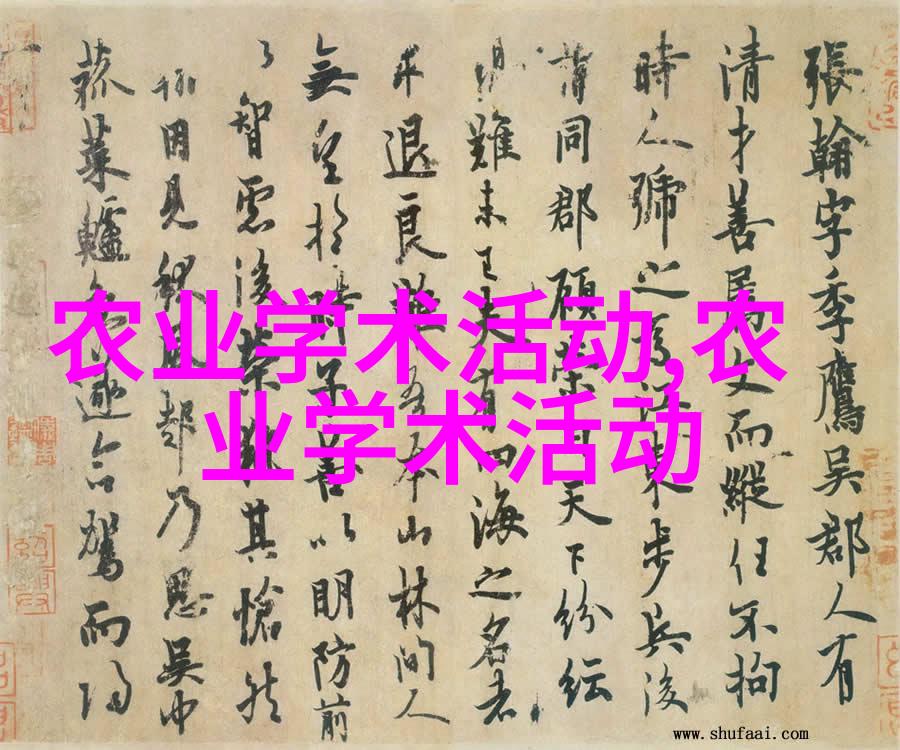 張翰字季鷹吳郡人有
清才善屬文而縱任不拘
時人號之為江東步兵後
謂同郡顧榮曰天下紛紜
難未已夫有四海之名者
求退良難吾本山林間人
無望於時子善以明防前
以智慮後榮執其愴然
翰因見秋風起乃思吳中
菰菜鱸魚遂命駕而歸
农业学术活动,农
业学术活动
www.shufaai.com